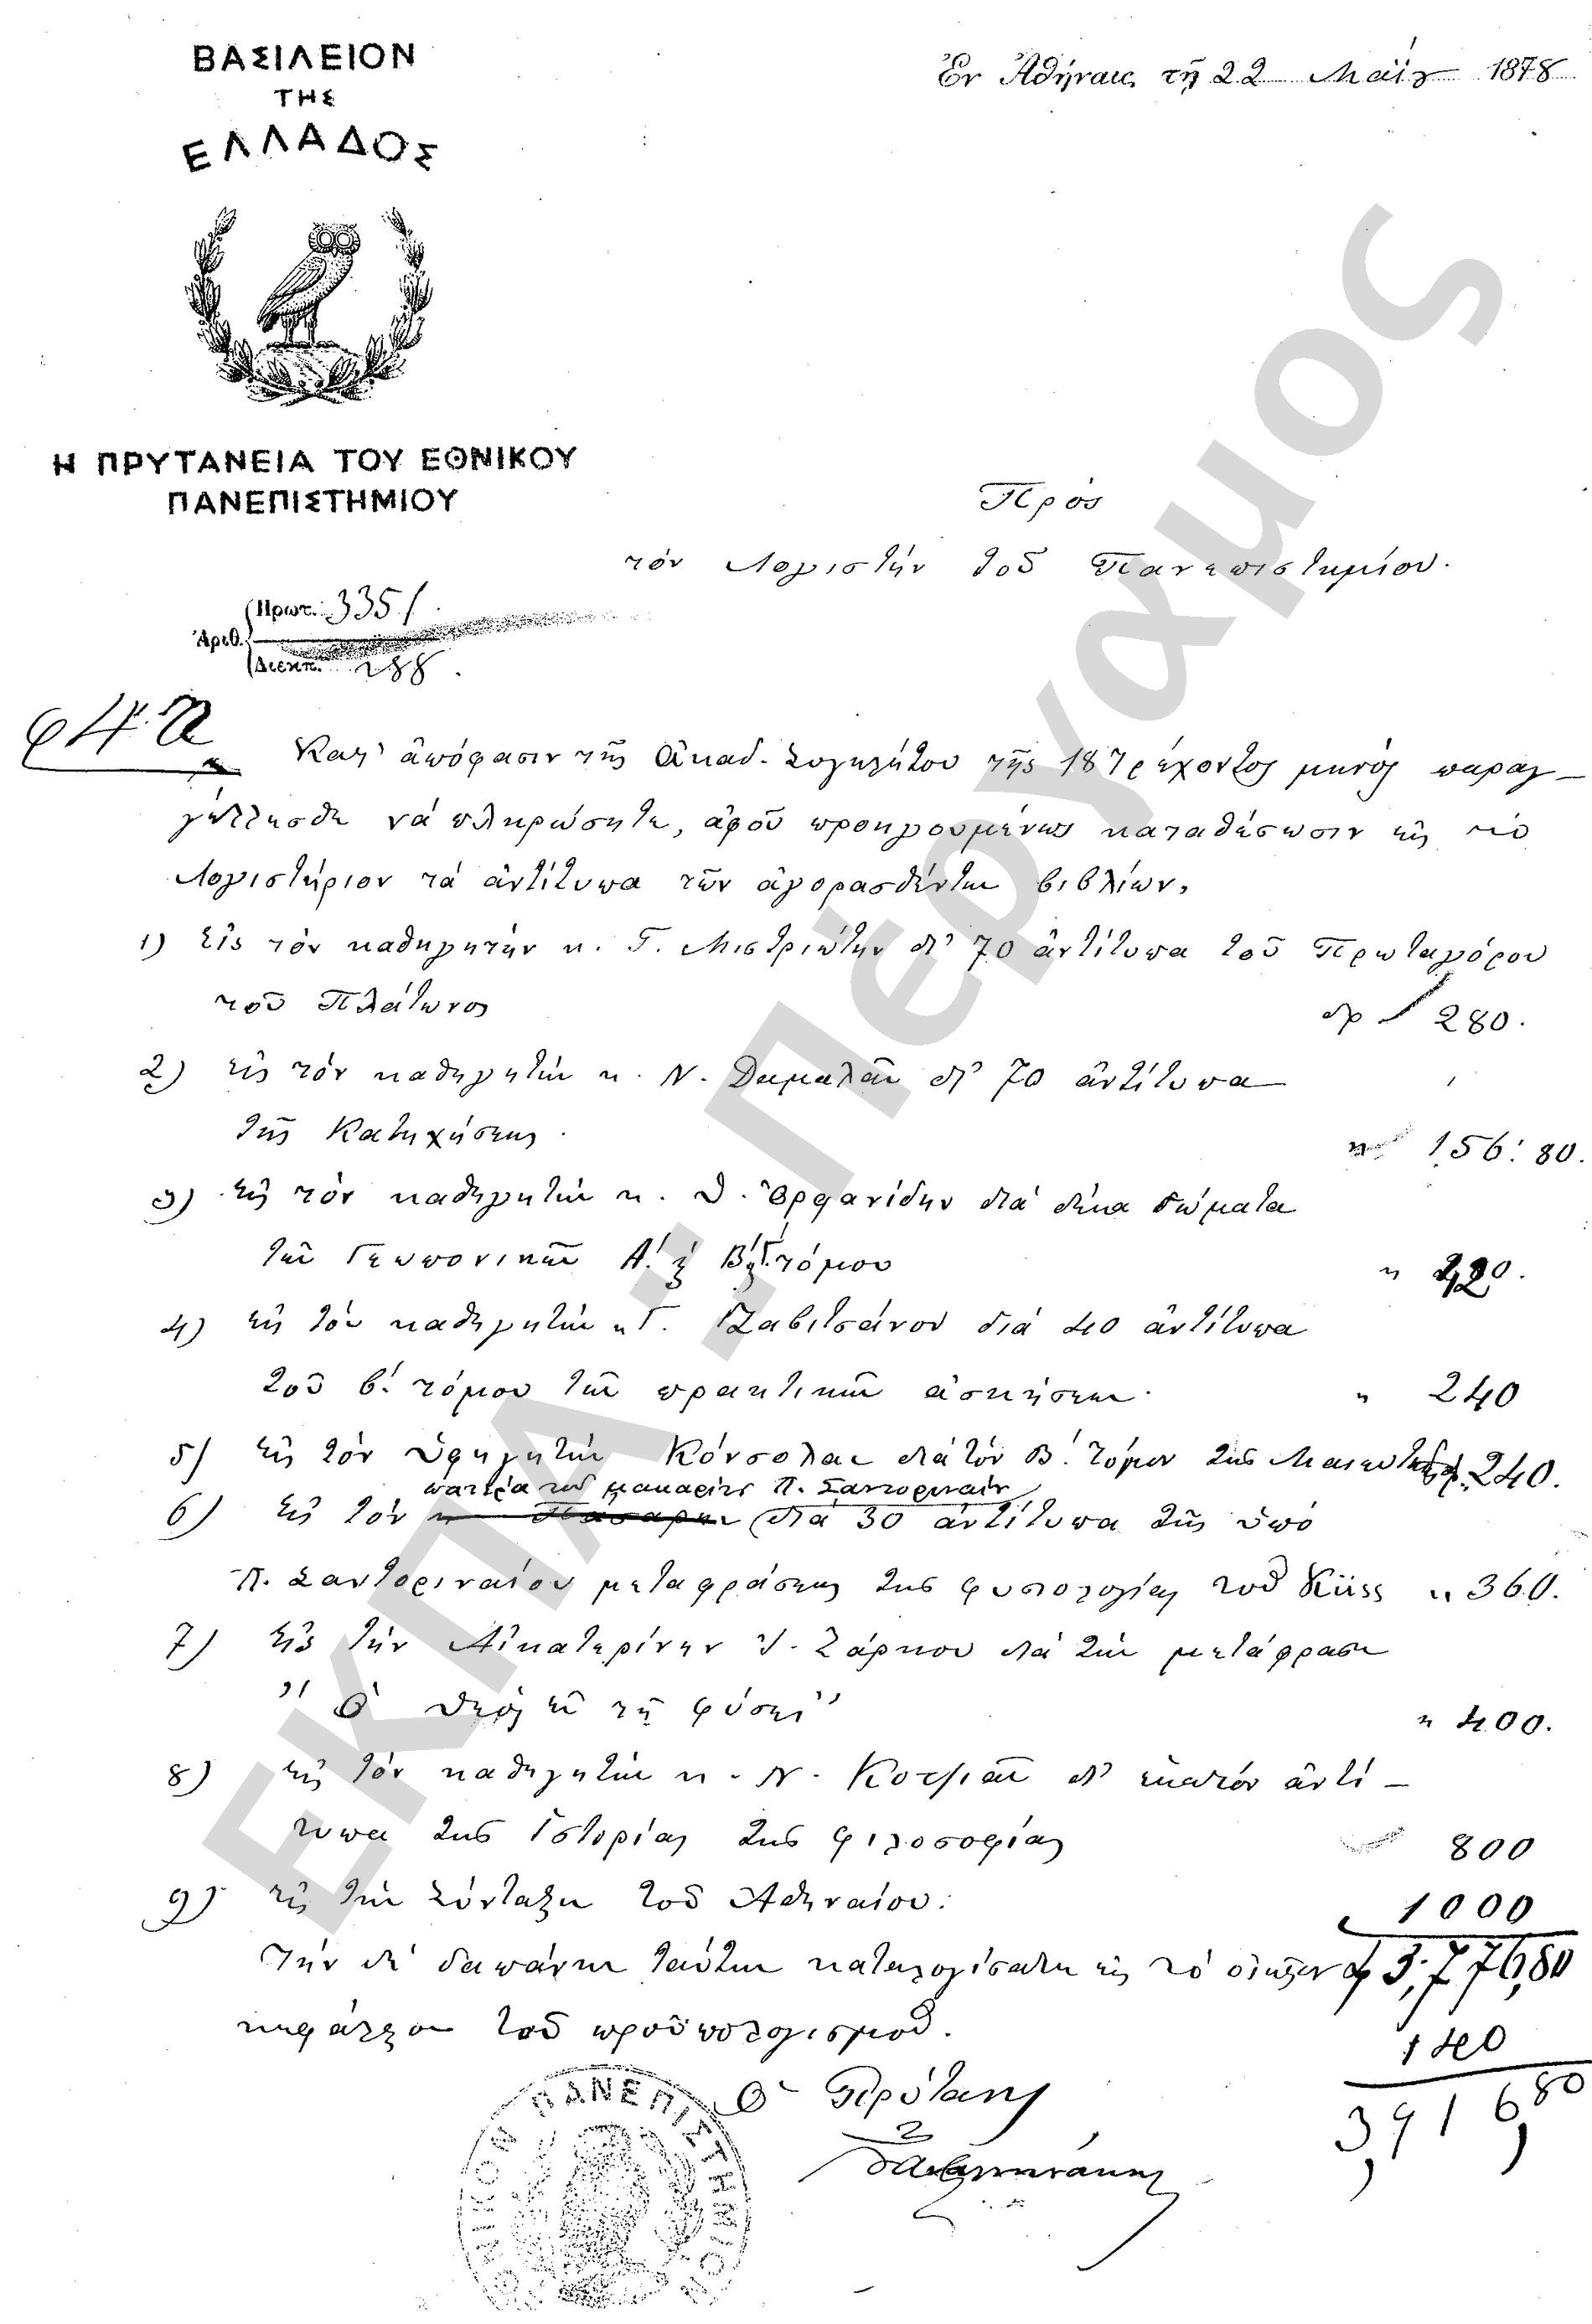 ΒΑΣΙΛΕΙΟΝ
ΤΗΣ
ΕΛΛΑΔΟΣ
Ἐν Ἀθήναις τῇ 22 Μαΐῳ 1878
Η ΠΡΥΤΑΝΕΙΑ ΤΟΥ ΕΘΝΙΚΟΥ
ΠΑΝΕΠΙΣΤΗΜΙΟΥ
Πρὸς
τὸν Λογιστὴν τοῦ Πανεπιστημίου.
Ἀριθ. Πρωτ. 3351
Διεκπ. 288.
Κατ' ἀπόφασιν τῆς Ἀκαδ. Συγκλήτου τῆς 18 τρέχοντος μηνὸς παραγ-
γέλλεσθε νὰ πληρώσητε, ἀφοῦ προηγουμένως καταθέσωσιν εἰς τὸ
Λογιστήριον τὰ ἀντίτυπα τῶν ἀγορασθέντων βιβλίων,
1) Εἰς τὸν καθηγητὴν κ. Γ. Μιστριώτην δι' 70 ἀντίτυπα τοῦ Πρωταγόρου
τοῦ Πλάτωνος δρ 280.
2) εἰς τὸν καθηγητὴν κ. Ν. Δαμαλᾶν δι' 70 ἀντίτυπα
τῆς Κατηχήσεως. " 156:80.
3) εἰς τὸν καθηγητὴν κ. Θ. Ὀρφανίδην διὰ δέκα σώματα
τῶν Γεωπονικῶν Α΄. Β΄ Γ΄. τόμου "
4) εἰς τὸν καθηγητὴν κ Γ. Ζαβιτσάνον διὰ 40 ἀντίτυπα
τοῦ β΄. τόμου τῶν πρακτικῶν ἀσκήσεων. " 240
5) εἰς τὸν ὑφηγητὴν Κόνσολαν διὰ τὸν Β΄. τόμον τῆς Μαιευτικῆς 240.
πατέρα τοῦ μακαρίτου Π. Σαντοριναίου
6) εἰς τὸν διὰ 30 ἀντίτυπα τῆς ὑπὸ
Π. Σαντοριναίου μεταφράσεως τῆς φυσιολογίας τοῦ Küss " 360.
7) εἰς τὴν Αἰκατερίνην Ζάρκου διὰ τὴν μετάφρασιν
"Ὁ θεὸς ἐν τῇ φύσει" " 400.
8) εἰς τὸν καθηγητὴν κ. Ν. Κοτζιᾶν δι' ἑκατὸν ἀντί-
τυπα τῆς Ἱστορίας τῆς φιλοσοφίας 800
9) εἰς τὴν Σύνταξιν τοῦ Ἀθηναίου: 1000
Τὴν δὲ δαπάνην ταύτην καταλογίσατε εἰς τὸ οἰκεῖον δρ 3,776,80
κεφάλαιον τοῦ προϋπολογισμοῦ.
140
3,916,80
Ὁ Πρύτανις
ΠΑΝΕΠΙΣΤΗΜΙΟΝ
ΕΚΠΑ - Πέργαμος